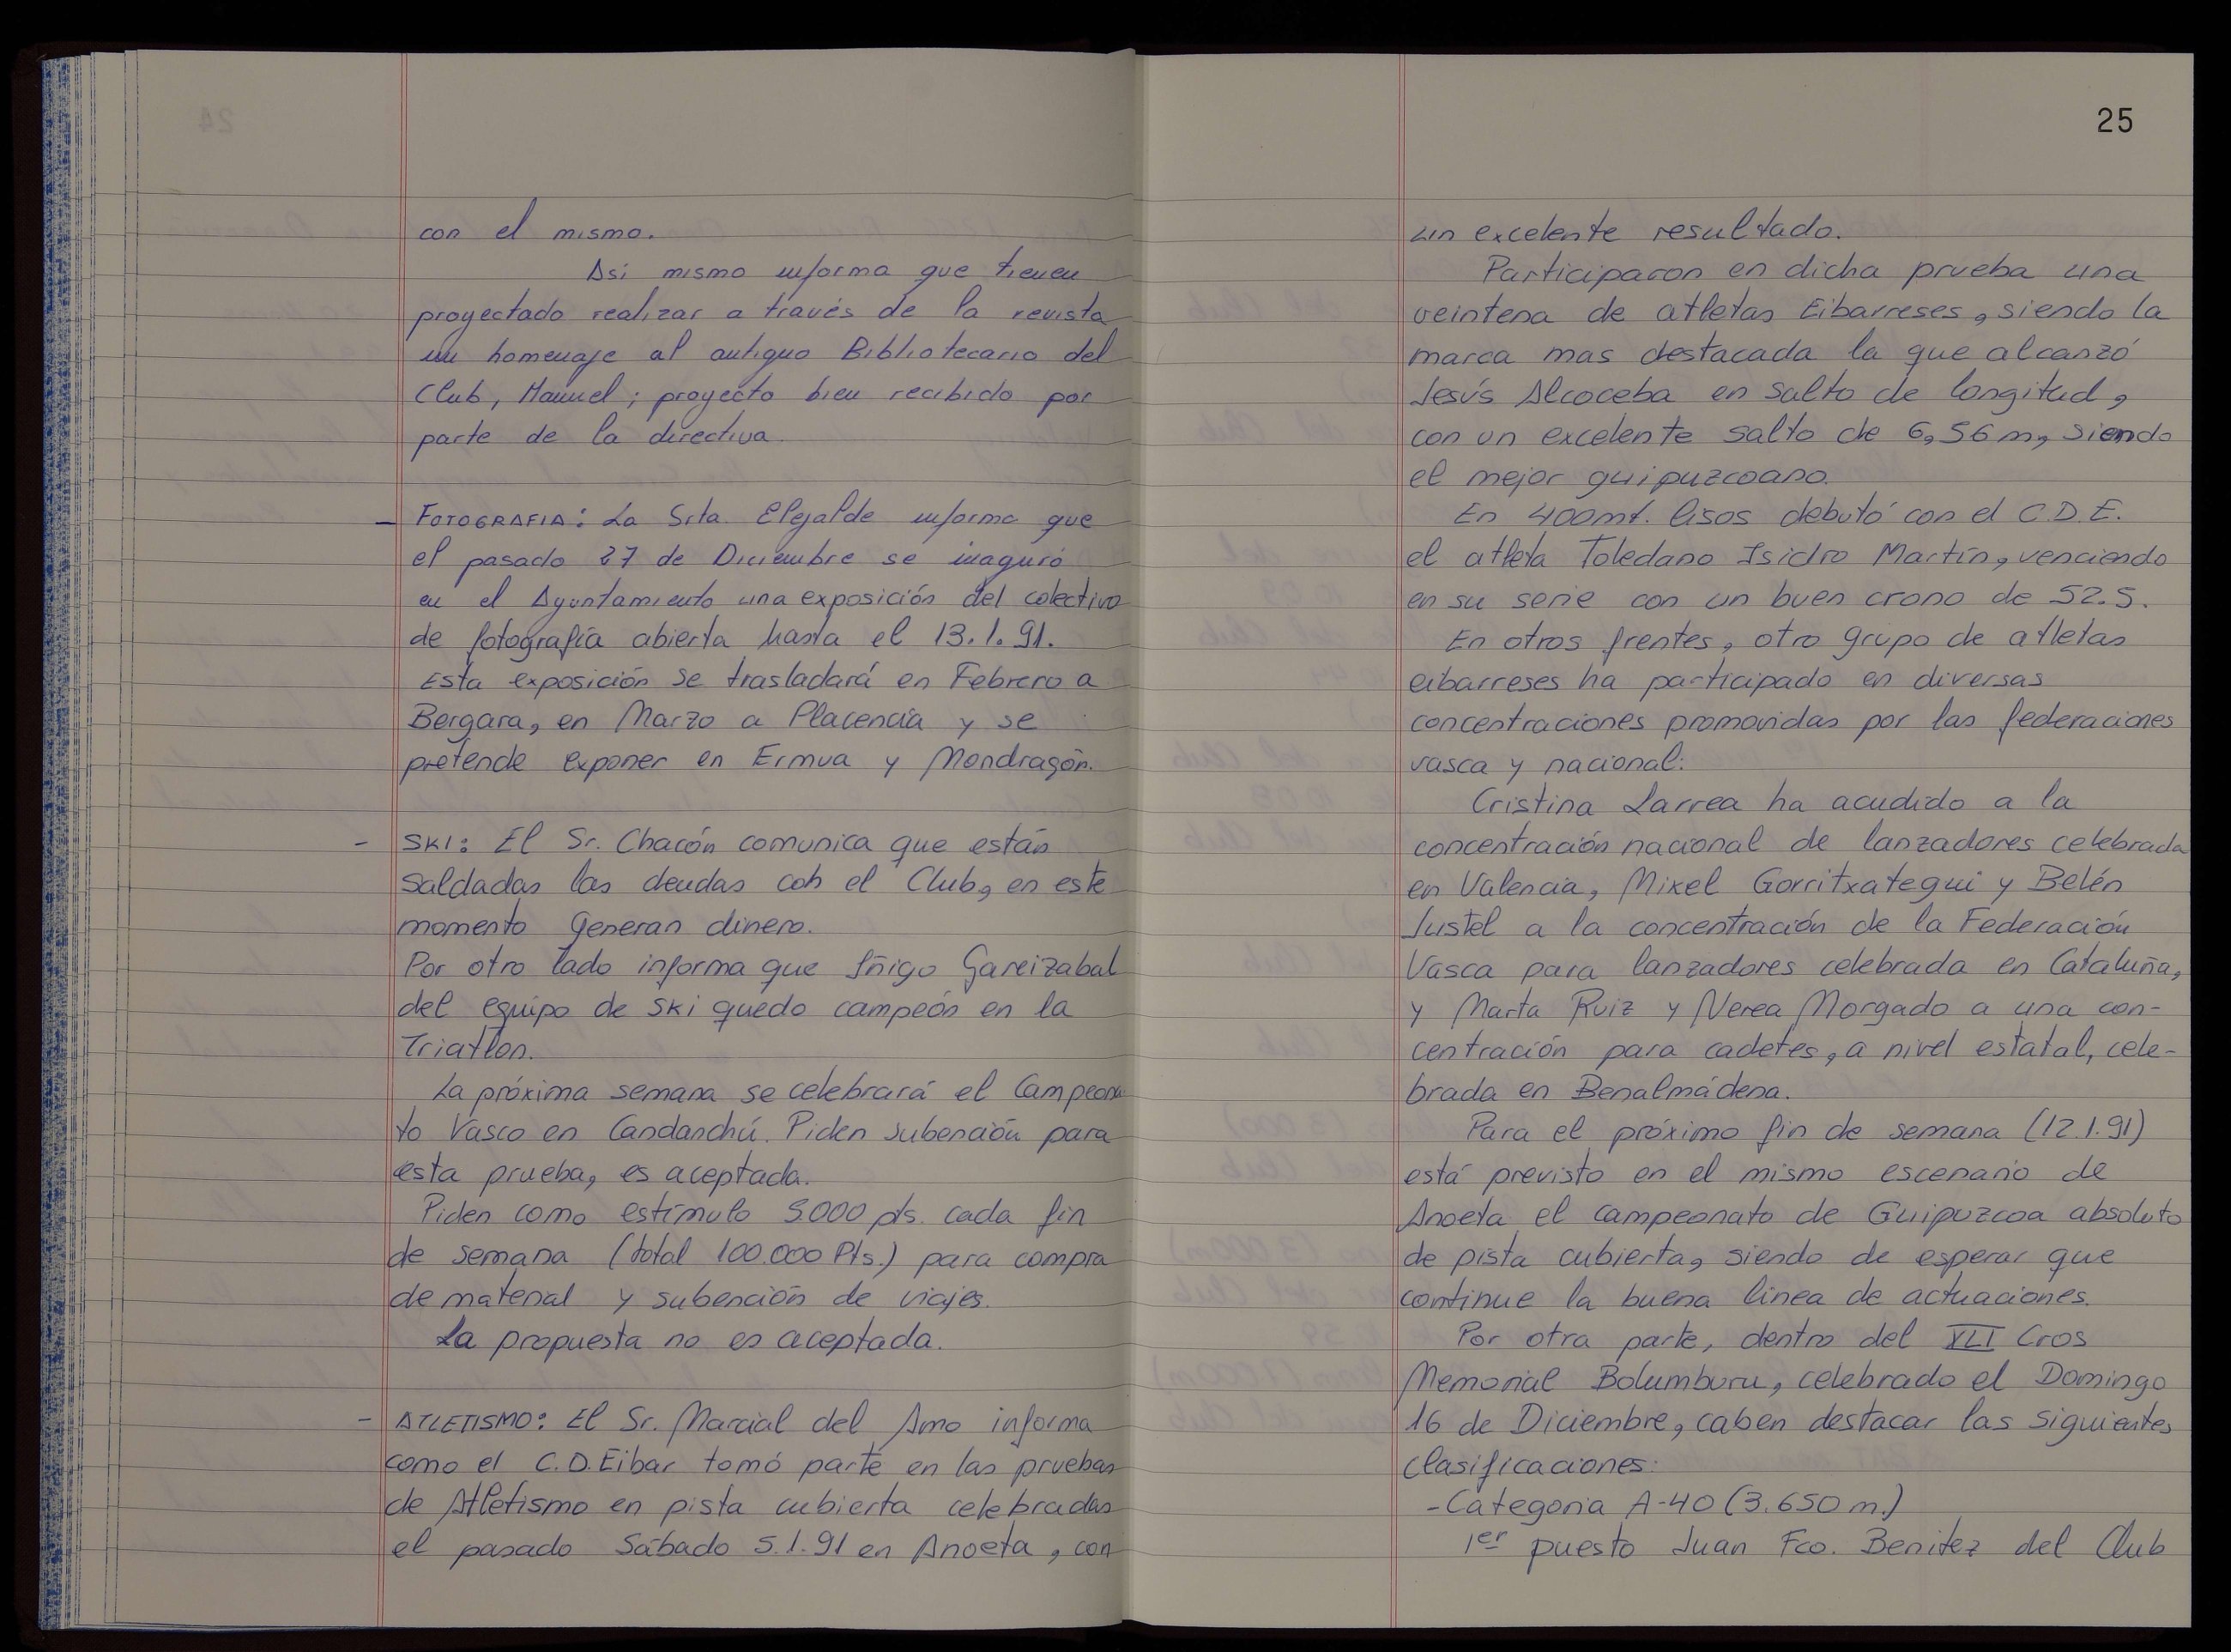 con el mismo.
Asi mismo informa que tienen
proyectado realizar a través de la revista
un homenaje al antiguo Bibliotecario del
Club, Manuel; proyecto bien recibido por
parte de la directiva.
- FOTOGRAFIA: La Srta. Elejalde informa que
el pasado 27 de Diciembre se inaguró
en el Ayuntamiento una exposición del colectivo
de fotografía abierta hasta el 13.1.91.
Esta exposición se trasladará en Febrero a
Bergara, en Marzo a Placencia y se
pretende exponer en Ermua y Mondragón.
- SKI: El Sr. Chacón comunica que están
saldadas las deudas con el Club, en este
momento generan dinero.
Por otro lado informa que Iñigo Gareizabal
del equipo de Ski quedo campeón en la
Triatlon.
La próxima semana se celebrará el Campeona-
to Vasco en Candanchú. Piden subención para
esta prueba, es aceptada.
Piden como estímulo 5.000 pts. cada fin
de semana (total 100.000 Pts.) para compra
de material y subención de viajes.
La propuesta no es aceptada.
- ATLETISMO: El Sr. Marcial del Amo informa
como el C.D.Eibar tomó parte en las pruebas
de Atletismo en pista cubierta celebradas
el pasado Sábado 5.1.91 en Anoeta, con
25
un excelente resultado.
Participaron en dicha prueba una
veintena de atletas Eibarreses, siendo la
marca mas destacada la que alcanzó
Jesús Alcoceba en salto de longitud,
con un excelente salto de 6,56 m, siendo
el mejor guipuzcoano.
En 400mt. lisos debutó con el C.D.E.
el atleta Toledano Isidro Martín, venciendo
en su serie con un buen crono de 52.5.
En otros frentes, otro grupo de atletas
eibarreses ha participado en diversas
concentraciones promovidas por las federaciones
vasca y nacional:
Cristina Larrea ha acudido a la
concentración nacional de lanzadores celebrada
en Valencia, Mixel Gorritxategui y Belén
Justel a la concentración de la Federación
Vasca para lanzadores celebrada en Cataluña,
y Marta Ruiz y Nerea Morgado a una con-
centración para cadetes, a nivel estatal, cele-
brada en Benalmádena.
Para el próximo fin de semana (12.1.91)
está previsto en el mismo escenario de
Anoeta el campeonato de Guipuzcoa absoluto
de pista cubierta, siendo de esperar que
continue la buena linea de actuaciones.
Por otra parte, dentro del XLI Cros
Memorial Bolumburu, celebrado el Domingo
16 de Diciembre, caben destacar las siguientes
clasificaciones:
- Categoria A-40 (3.650 m.)
1er puesto Juan Fco. Benitez del Club